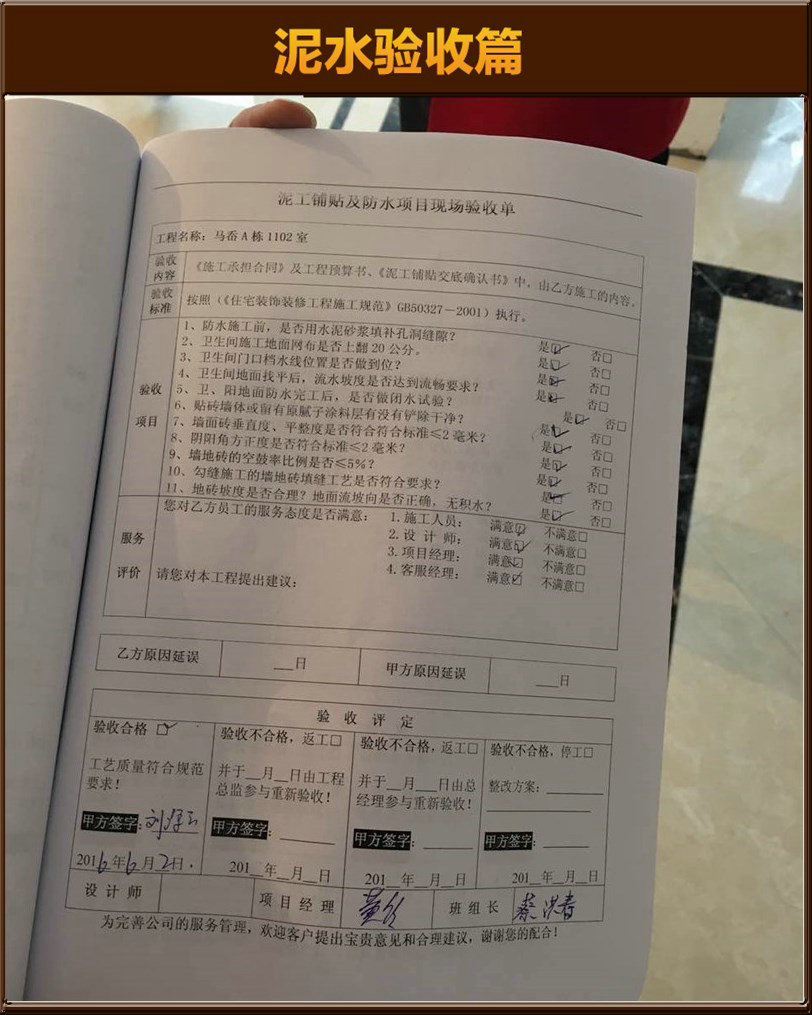 泥水验收篇
泥工铺贴及防水项目现场验收单
工程名称：马岙A栋1102室
验收内容
《施工承担合同》及工程预算书、《泥工铺贴交底确认书》中，由乙方施工的内容。
验收标准
按照（《住宅装饰装修工程施工规范》GB50327－2001）执行。
验收项目
1、防水施工前，是否用水泥砂浆填补孔洞缝隙？ 是☑ 否□
2、卫生间施工地面网布是否上翻20公分。 是☑ 否□
3、卫生间门口档水线位置是否做到位？ 是☑ 否□
4、卫生间地面找平后，流水坡度是否达到流畅要求？ 是☑ 否□
5、卫、阳地面防水完工后，是否做闭水试验？ 是☑ 否□
6、贴砖墙体或留有原腻子涂料层有没有铲除干净？ 是☑ 否□
7、墙面砖垂直度、平整度是否符合符合标准≤2毫米？ 是☑ 否□
8、阴阳角方正度是否符合标准≤2毫米？ 是☑ 否□
9、墙地砖的空鼓率比例是否≤5%？ 是☑ 否□
10、勾缝施工的墙地砖填缝工艺是否符合要求？ 是☑ 否□
11、地砖坡度是否合理？地面流坡向是否正确，无积水？ 是☑ 否□
服务评价
您对乙方员工的服务态度是否满意： 1.施工人员： 满意☑ 不满意□
2.设 计 师： 满意☑ 不满意□
3.项目经理： 满意☑ 不满意□
4.客服经理： 满意☑ 不满意□
请您对本工程提出建议：
乙方原因延误 ___日 甲方原因延误 ___日
验 收 评 定
验收合格 ☑ 验收不合格，返工□ 验收不合格，返工□ 验收不合格，停工□
工艺质量符合规范 并于__月__日由工程 并于__月__日由总 整改方案：______
要求！ 总监参与重新验收！ 经理参与重新验收！
甲方签字： 甲方签字：______ 甲方签字：______ 甲方签字：______
2016年6月2日. 201__年__月__日 201__年__月__日 201__年__月__日
设 计 师 项 目 经 理 班 组 长 蔡洪春
为完善公司的服务管理，欢迎客户提出宝贵意见和合理建议，谢谢您的配合！